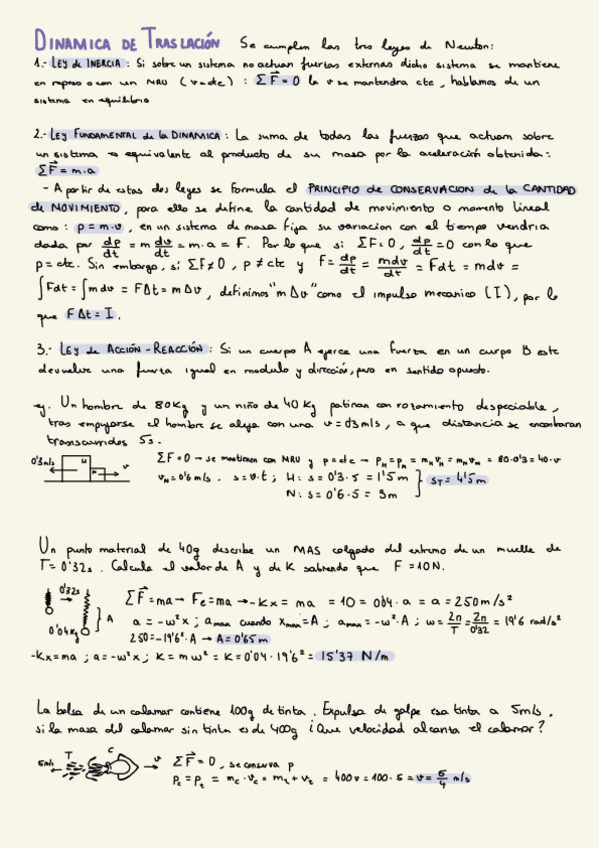 DINAMICA DE TRASLACIÓN Se cumplen las tres leyes de Newton:
1.- LEY de INERCIA : Si sobre un sistema no actuan fuerzas externas dicho sistema se mantiene
en reposo o con un MRU (v=ctc) : ΣF⃗ = 0 la v se mantendra ctc, hablamos de un
sistema en equilibrio
2.- LEY FUNDAMENTAL de la DINAMICA : La suma de todas las fuerzas que actuan sobre
un sistema es equivalente al producto de su masa por la aceleración obtenida :
ΣF⃗ = m.a
- A partir de estas dos leyes se formula el PRINCIPIO de CONSERVACION de la CANTIDAD
de NOVIMIENTO, para ello se define la cantidad de movimiento o momento lineal
como : p = m.v, en un sistema de masa fija su variacion con el tiempo vendria
dada por dp/dt = m dv/dt = m.a = F. Por lo que si ΣF=0, dp/dt = 0 con lo que
p = ctc. Sin embargo, si ΣF≠0, p ≠ ctc y F = dp/dt = mdv/dt = Fdt = mdv =
∫Fdt = ∫mdv = FΔt = mΔv, definimos "mΔv" como el impulso mecanico (I), por lo
que FΔt = I.
3.- LEY de ACCIÓN - REACCIÓN : Si un cuerpo A ejerce una fuerza en un curpo B este
devuelve una fuerza igual en modulo y dirección, pero en sentido opuesto.
ej. Un hombre de 80Kg y un niño de 40 Kg patinan con rozamiento despeciable,
tras empujarse el hombre se aleja con una v=0'3m/s, a que distancia se encontraran
transcurridos 5s.
0'3 m/s H N v ΣF⃗ = 0 → se mantienen con MRU y p = ctc → p_H = p_N = m_H v_H = m_N v_N = 80·0'3 = 40·v
v_N = 0'6 m/s. s = v·t ; H: s = 0'3·5 = 1'5m
N: s = 0'6·5 = 3m } s_T = 4'5m
Un punto material de 40g describe un MAS colgado del extremo de un muelle de
T = 0'32s. Calcula el valor de A y de K sabiendo que F = 10N.
0'32s 0'04Kg } A ΣF⃗ = ma → Fe = ma → -Kx = ma = 10 = 0'04·a = a = 250m/s²
a = -w²x ; amax cuando xmax = A ; amax = -w²·A ; w = 2π/T = 2π/0'32 = 19'6 rad/s²
250 = -19'6²·A → A = 0'65m
-Kx = ma ; a = -w²x ; K = mw² = K = 0'04·19'6² = 15'37 N/m
La bolsa de un calamar contiene 100g de tinta. Expulsa de golpe esa tinta a 5m/s,
si la masa del calamar sin tinta es de 400g ¿Que velocidad alcanza el calamar?
5m/s T C → v ΣF⃗ = 0, se conserva p
p_c = p_t = m_c·v_c = m_t + v_t = 400v = 100·5 = v = 5/4 m/s